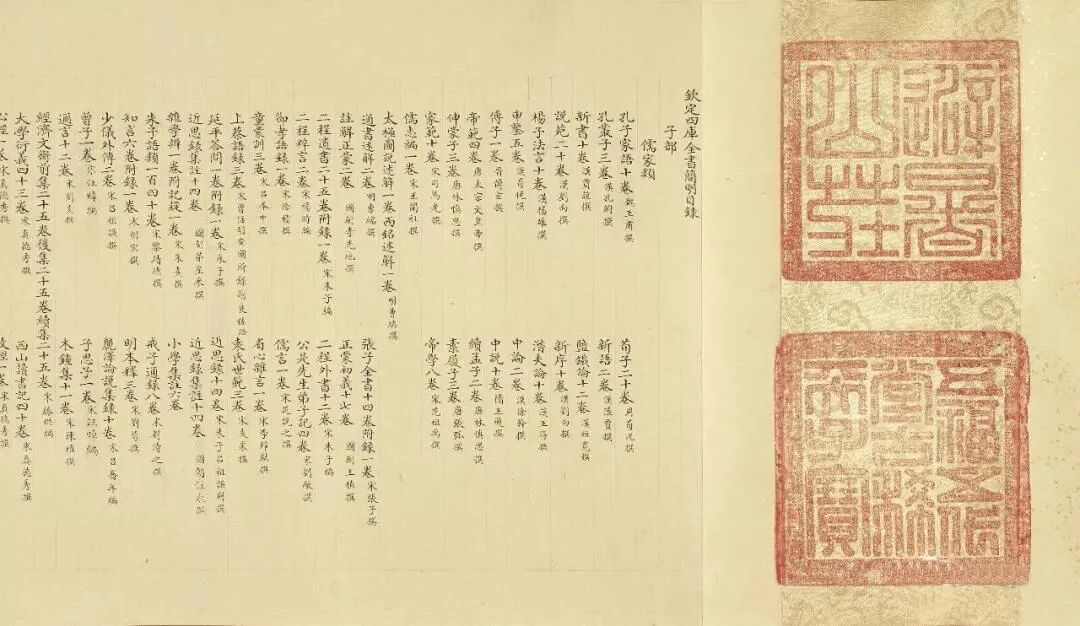 避暑
山莊
五福五代
堂古稀
天子寶
欽定四庫全書簡明目錄
子部
儒家類
孔子家語十卷 魏王肅撰 荀子二十卷 周荀況撰
孔叢子三卷 漢孔鮒撰 新語二卷 漢陸賈撰
新書十卷 漢賈誼撰 鹽鐵論十二卷 漢桓寬撰
說苑二十卷 漢劉向撰 新序十卷 漢劉向撰
楊子法言十卷 漢楊雄撰 潛夫論十卷 漢王符撰
申鑒五卷 漢荀悅撰 中論二卷 漢徐幹撰
傅子一卷 晉傅玄撰 中說十卷 隋王通撰
帝範四卷 唐太宗文皇帝撰 續孟子二卷 唐林慎思撰
伸蒙子三卷 唐林慎思撰 素履子三卷 唐張弧撰
家範十卷 宋司馬光撰 帝學八卷 宋范祖禹撰
儒志編一卷 宋王開祖撰
太極圖說述解一卷西銘述解一卷 明曹端撰
通書述解二卷 明曹端撰 張子全書十四卷附錄一卷 宋張子撰
註解正蒙二卷 國朝李光地撰 正蒙初義十七卷 國朝王植撰
二程遺書二十五卷附錄一卷 宋朱子編 二程外書十二卷 宋朱子編
二程粹言二卷 宋楊時撰 公是先生弟子記四卷 宋劉敞撰
節孝語錄一卷 宋徐積撰 儒言一卷 宋晁說之撰
童蒙訓三卷 宋呂本中撰 省心雜言一卷 宋李邦獻撰
上蔡語錄三卷 宋曾恬胡安國所錄謝良佐語 袁氏世範三卷 宋袁采撰
延平答問一卷附錄一卷 宋朱子撰 近思錄十四卷 宋朱子呂祖謙同撰
近思錄集註十四卷 國朝茅星來撰 近思錄集註十四卷 國朝江永撰
雜學辨一卷附記疑一卷 宋朱熹撰 小學集註六卷
朱子語類一百四十卷 宋黎靖德撰 戒子通錄八卷 宋劉清之撰
知言六卷附錄一卷 宋胡宏撰 明本釋三卷 宋劉荀撰
少儀外傳二卷 宋呂祖謙撰 麗澤論說集錄十卷 宋呂喬年編
曾子一卷 宋汪晫編 子思子一卷 宋汪晫編
邇言十二卷 宋劉炎撰 木鐘集十一卷 宋陳埴撰
經濟文衡前集二十五卷後集二十五卷續集二十五卷 宋滕珙編
大學衍義四十三卷 宋真德秀撰 西山讀書記四十卷 宋真德秀撰
心經一卷 宋真德秀撰 政經一卷 宋真德秀撰